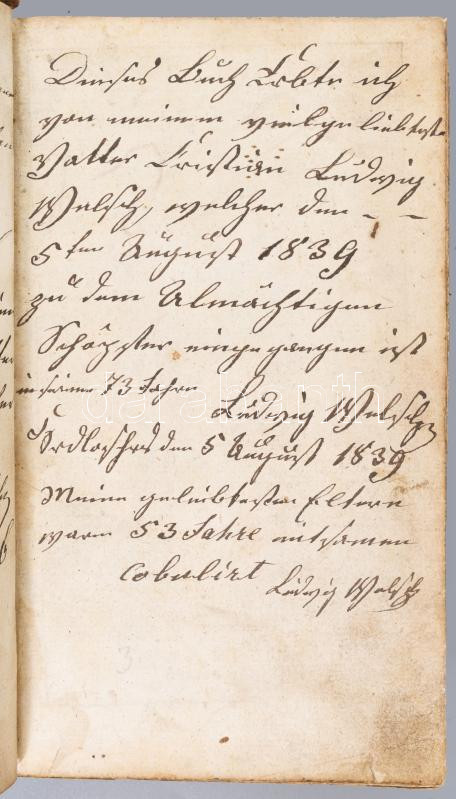 Dieses Buch Erbte ich
von meinem vielgeliebtesten
Vatter Cristian Ludwig
Walsch, welcher den – –
5ten August 1839
zu dem Almächtigen
Schöpfer eingegangen ist
in seinem 73 Jahre
Ludwig Walsch
den 5 August 1839
Meine geliebtesten Eltern
waren 53 Jahre mitsamen
Ludwig Walsch
darabanth